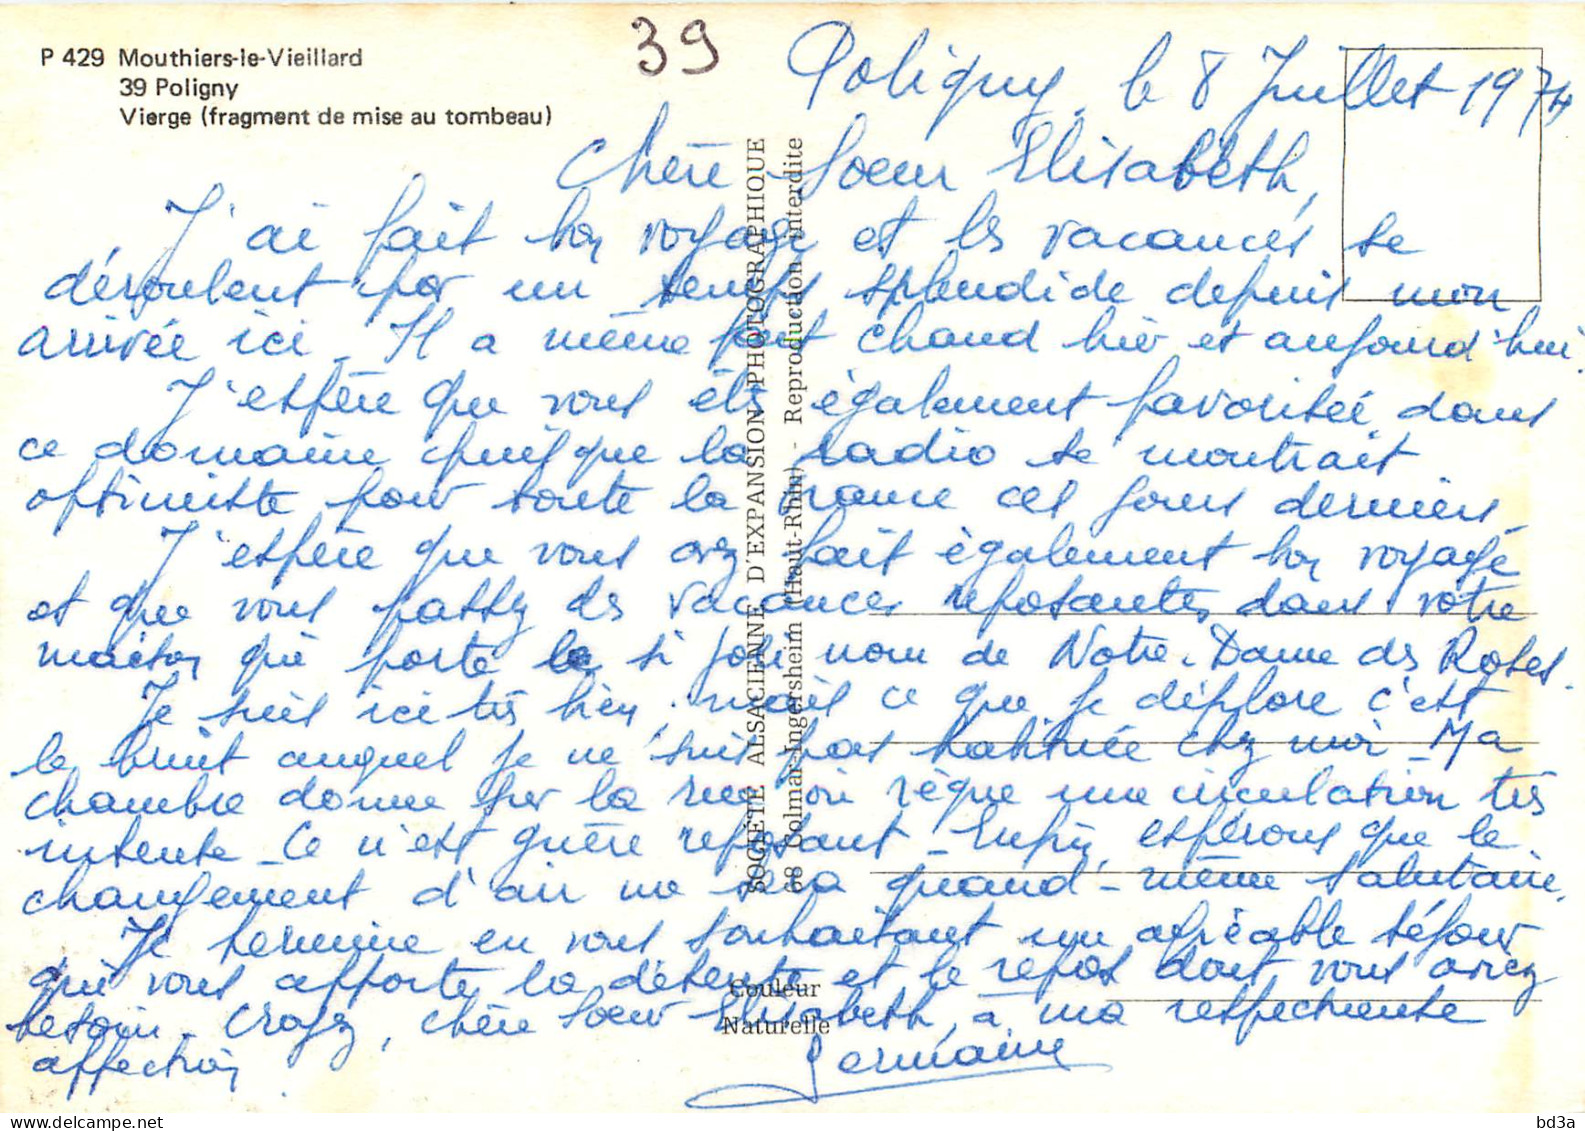 P 429 Mouthiers-le-Vieillard
39 Poligny
Vierge (fragment de mise au tombeau)
39
Poligny, le 8 Juillet 1974
Chère Soeur Elisabeth,
J'ai fait bon voyage et les vacances se
déroulent par un temps splendide depuis mon
arrivée ici. Il a même fait chaud hier et aujourd'hui.
J'espère que vous êtes également favorisée dans
ce domaine puisque la radio se montrait
optimiste pour toute la France ces jours derniers.
J'espère que vous avez fait également bon voyage
et que vous passez des vacances reposantes dans votre
maison qui porte le si joli nom de Notre-Dame des Roses.
Je suis ici très bien, mais ce que je déplore c'est
le bruit auquel je ne suis pas habituée chez moi. Ma
chambre donne sur la rue où règne une circulation très
intense. Ce n'est guère reposant. Enfin, espérons que le
changement d'air me sera quand-même salutaire.
Je termine en vous souhaitant un agréable séjour
qui vous apporte la détente et le repos dont vous aviez
besoin. Croyez, chère Soeur Elisabeth, à ma respectueuse
affection.
Germaine
SOCIÉTÉ ALSACIENNE D'EXPANSION PHOTOGRAPHIQUE
68 Colmar-Ingersheim (Haut-Rhin) - Reproduction interdite
Couleur
Naturelle
bd3a